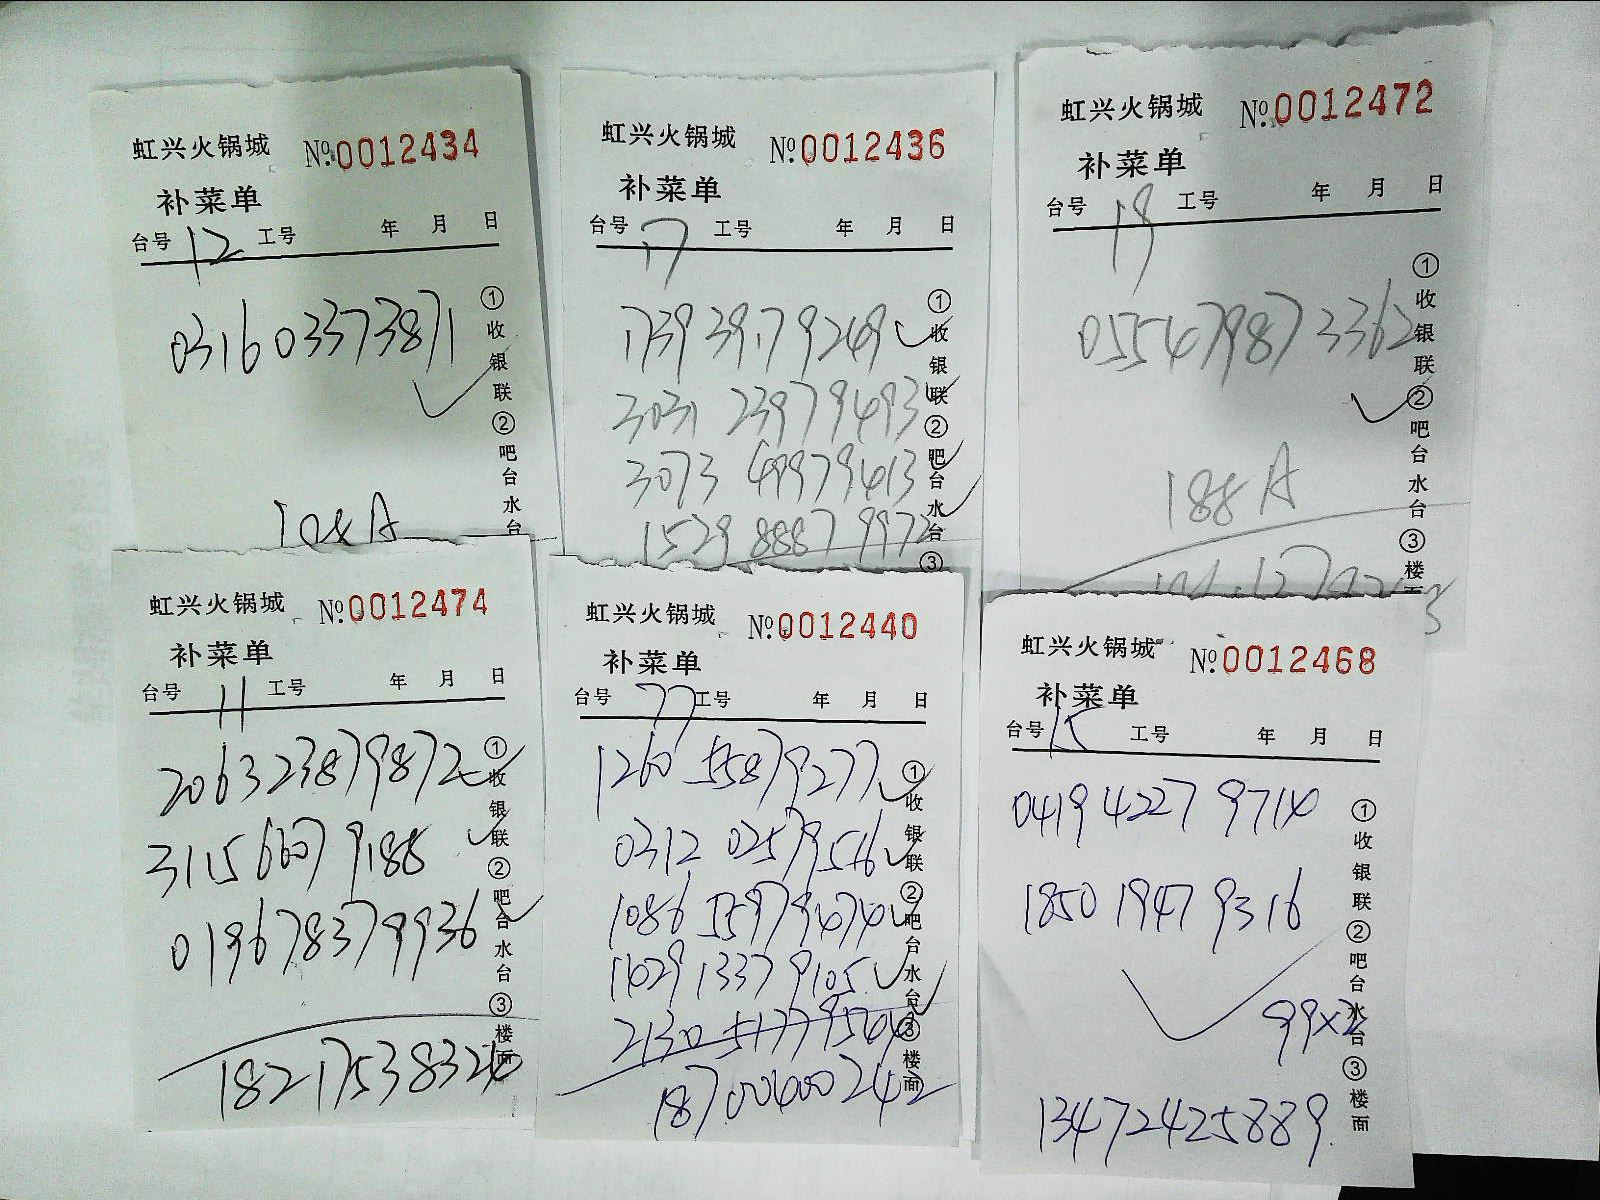 虹兴火锅城 №.0012434
补菜单
台号 12 工号 年 月 日
031603373871
①收银联②吧台水台
108A
虹兴火锅城 №.0012436
补菜单
台号 17 工号 年 月 日
173939179249
303123979493
3073 49979413
1529 88879972
①收银联②吧台水台③
虹兴火锅城 №.0012472
补菜单
台号 19 工号 年 月 日
055479873362
188A
①收银联②吧台水台③楼
虹兴火锅城 №.0012474
补菜单
台号 11 工号 年 月 日
206323879872
3115 66079188
019678379936
18217538326
①收银联②吧台水台③楼面
虹兴火锅城 №.0012440
补菜单
台号 77 工号 年 月 日
1260 55879277
0312 02579516
1086 55979474
1029 13379105
18700400242
①收银联②吧台水台③楼面
虹兴火锅城 №.0012468
补菜单
台号 15 工号 年 月 日
0419 4227 9714
1850 1947 9316
99×2
13472425889
①收银联②吧台水台③楼面